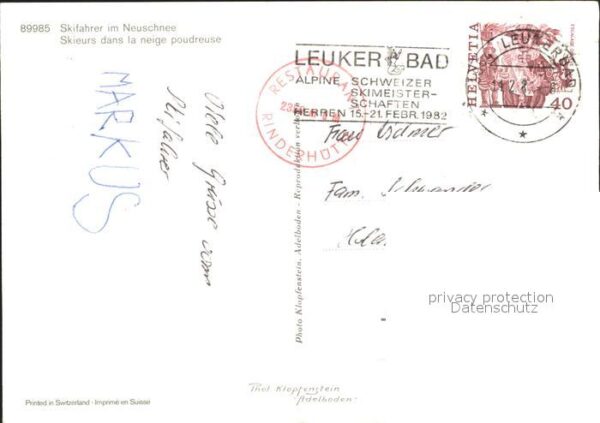 89985 Skifahrer im Neuschnee
Skieurs dans la neige poudreuse
MARKUS
Viele Grüsse vom
Skifahrer
RESTAURANT
RINDERHÜTTE
LEUKERBAD
ALPINE SCHWEIZER
SKIMEISTER-
SCHAFTEN
HERREN 15.-21. FEBR. 1982
LEUKERBAD
HELVETIA
40
Frau
Fam.
privacy protection
Datenschutz
Photo Klopfenstein, Adelboden - Reproduktion verboten
Printed in Switzerland - Imprimé en Suisse
Phot Klopfenstein
Adelboden